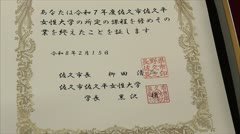 あなたは令和7年度佐久市佐久平
女性大学の所定の課程を修めその
業を終えたことを証します
令和8年2月15日
佐久市長 栁田清二
佐久市佐久平女性大学
学長 黒沢